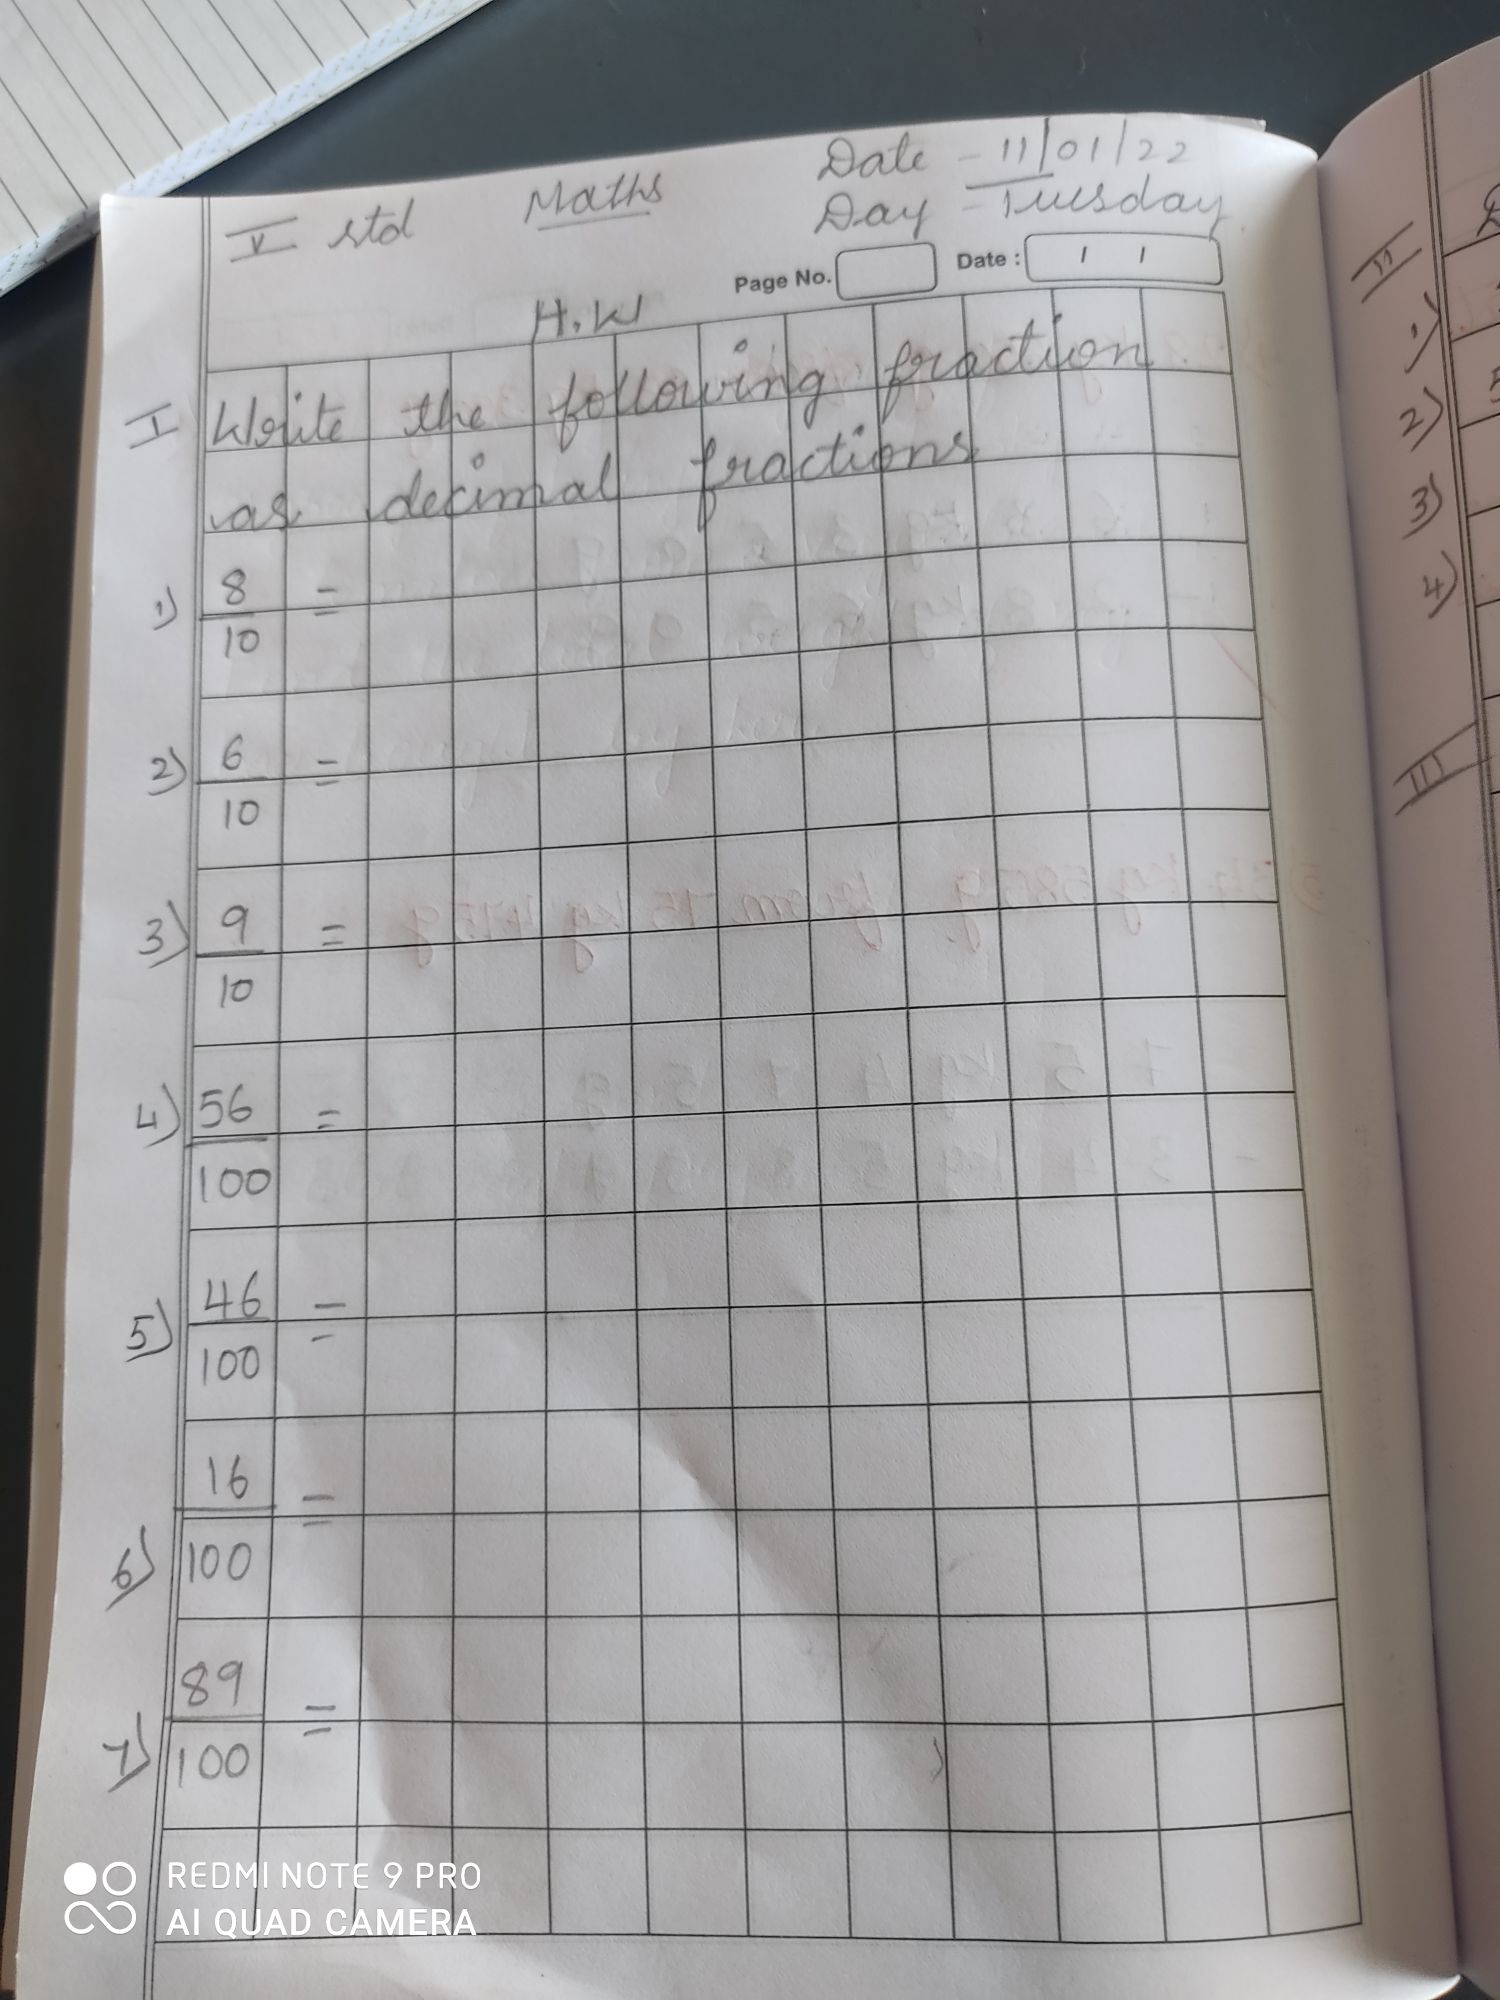 V std Maths Date - 11/01/22
Day - Tuesday
Page No. Date : / /
H.W
I Write the following fraction
as decimal fractions
1) 8/10 =
2) 6/10 =
3) 9/10 =
4) 56/100 =
5) 46/100 =
6) 16/100 =
7) 89/100 =
II
1)
2)
3)
4)
III
REDMI NOTE 9 PRO
AI QUAD CAMERA